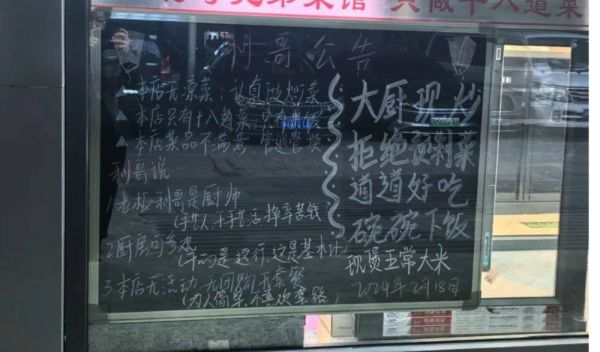 菜馆 只做十八道菜
利哥公告
▲本店无凉菜:认真做炒菜
▲本店只有十八道菜:
▲本店菜品不满意:管退管换
利哥说
1.老板利哥是厨师
(手艺人 干手艺活 挣辛苦钱
2.厨房可参观
(干的是这行 这是基本功)
3.本店无活动 无团购 无套餐
(为人简单 不喜欢套路)
大厨现炒
拒绝预制菜
道道好吃
碗碗下饭
现煲五常大米
2024年2月18日